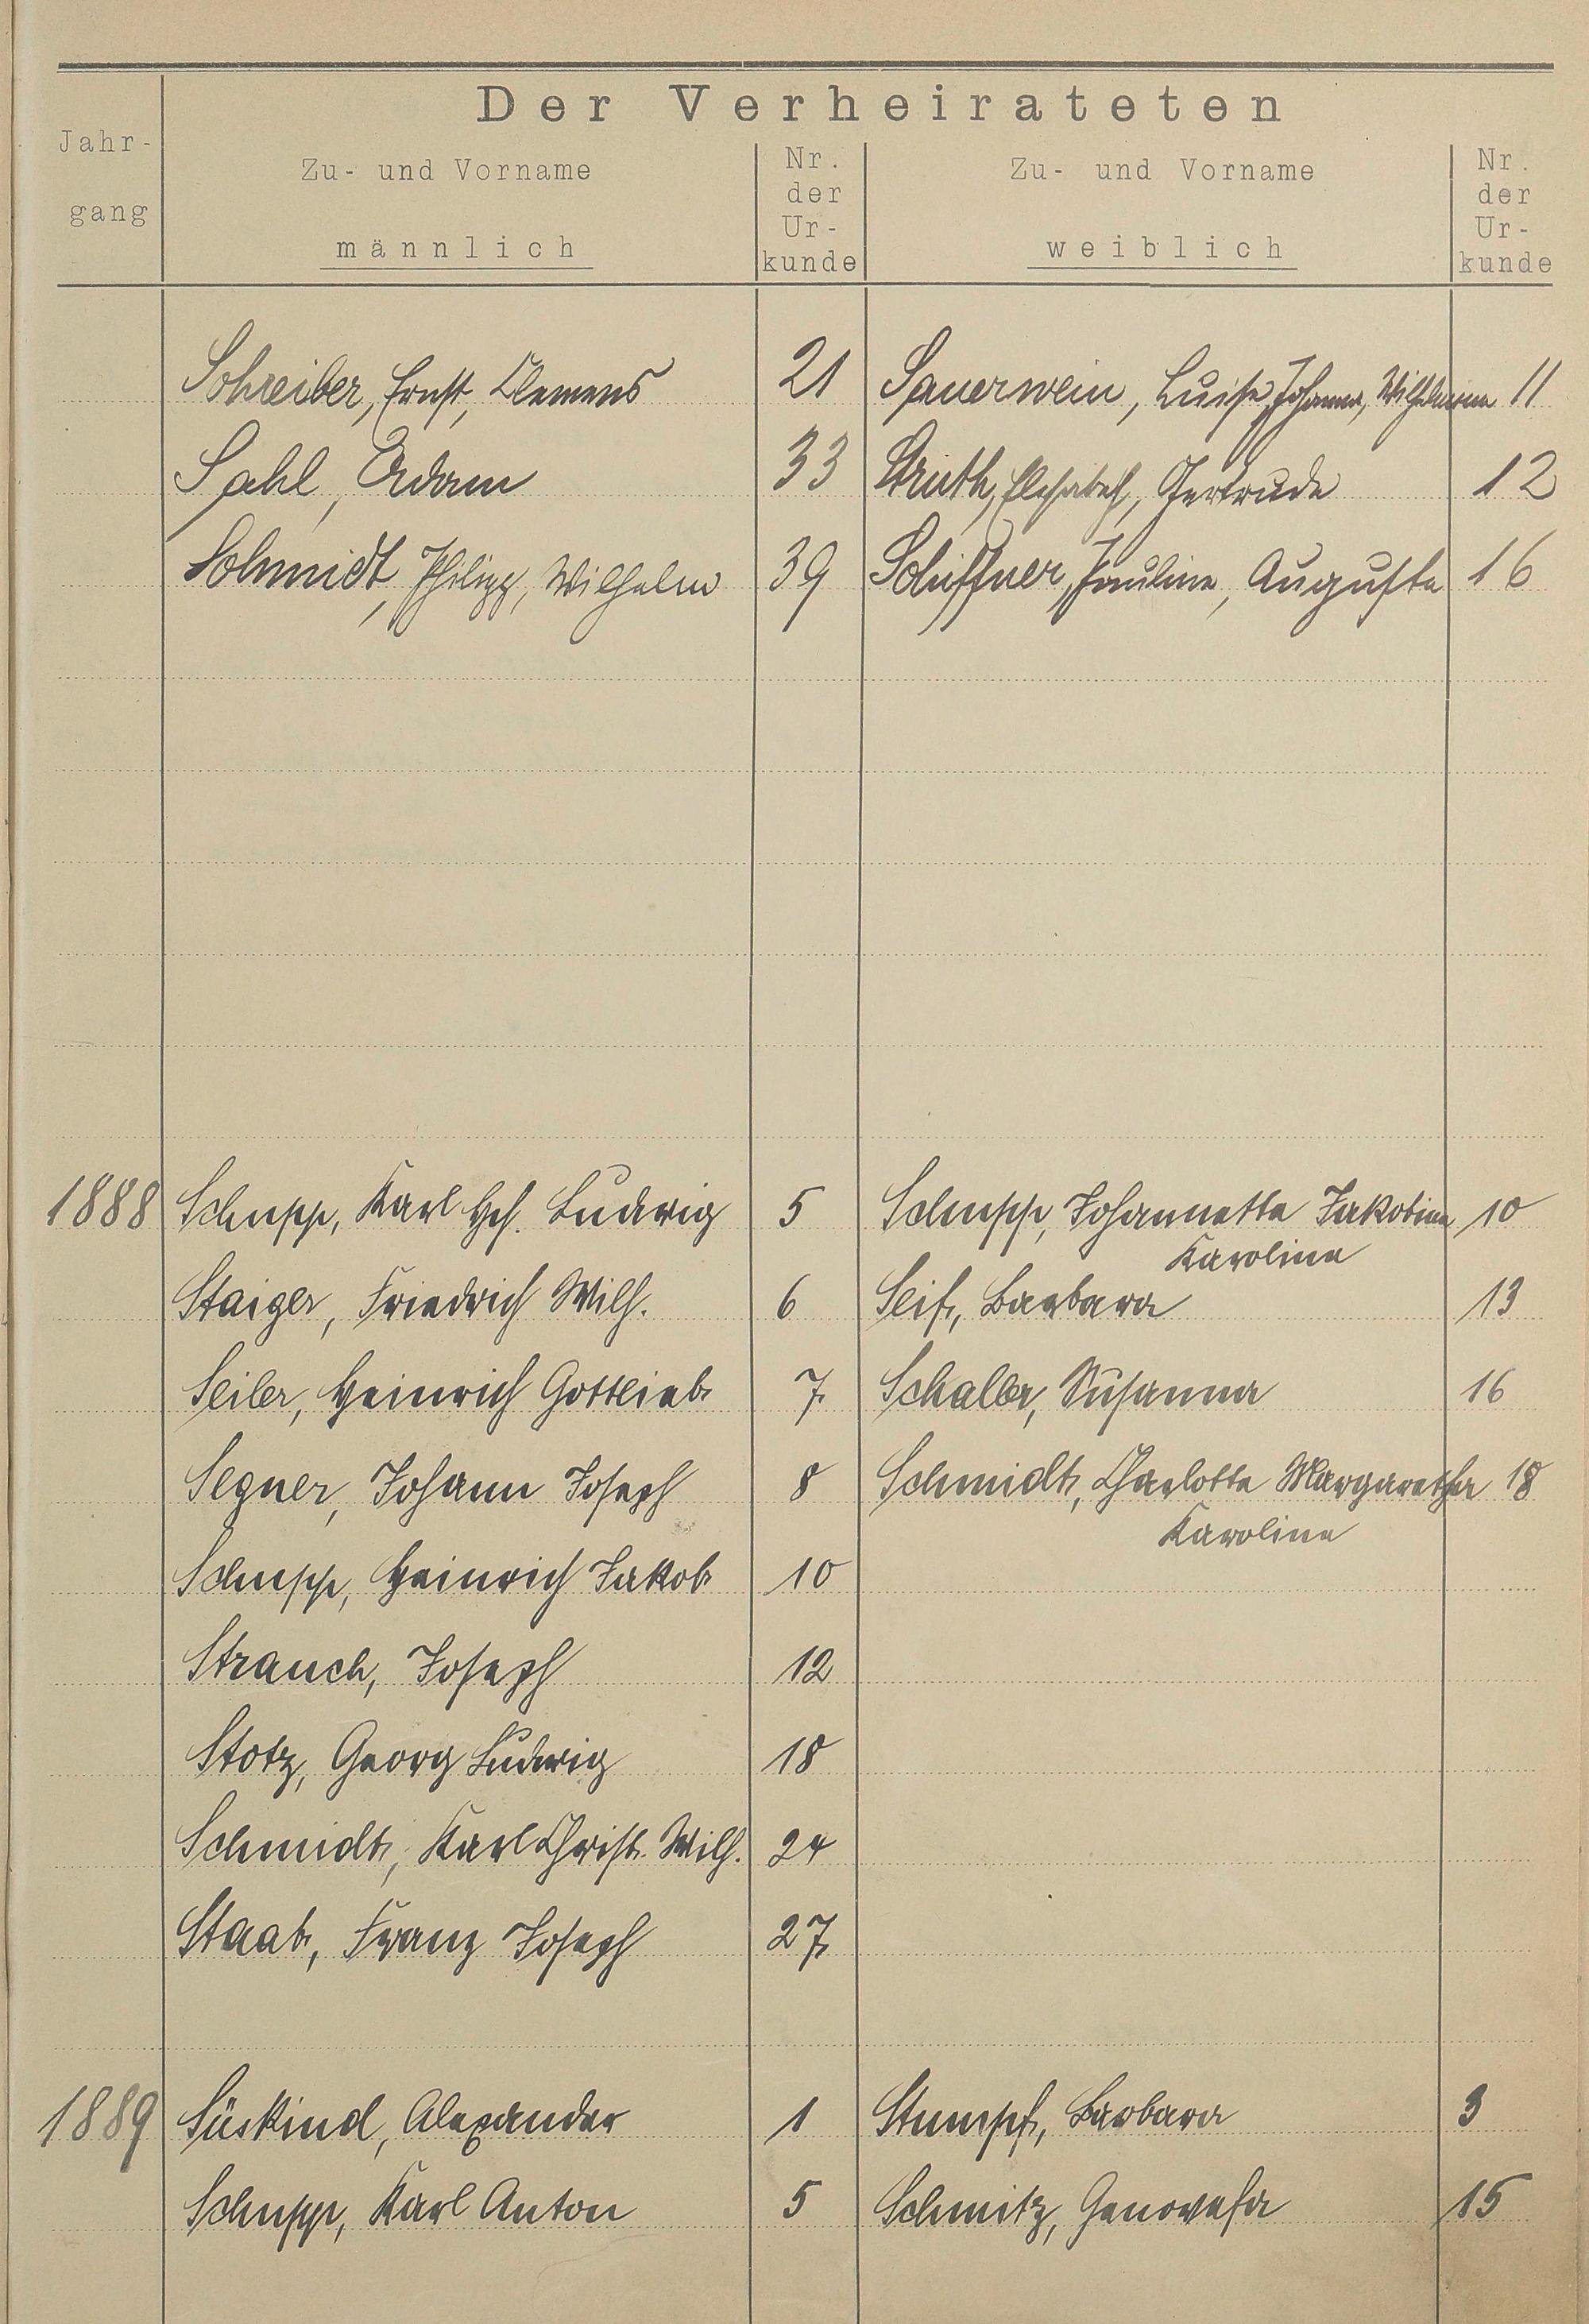 Der Verheirateten
Jahr-
gang
Zu- und Vorname
männlich
Nr.
der
Ur-
kunde
Zu- und Vorname
weiblich
Nr.
der
Ur-
kunde
Schreiber, Ernst, Clemens 21 Sauerwein, Luise, Johanna, Wilhelmine 11
Sahl, Adam 33 Struth, Elisabeth, Gertrude 12
Schmidt, Philipp, Wilhelm 39 Schiffner, Pauline, Auguste 16
1888 Schupp, Karl Hch. Ludwig 5 Schupp, Johannette Jakobine 10
Karoline
Staiger, Friedrich Wilh. 6 Seif, Barbara 13
Seiler, Heinrich Gottlieb 7 Schaller, Susanna 16
Segner, Johann Joseph 8 Schmidt, Charlotte Margaretha 18
Karoline
Schupp, Heinrich Jakob 10
Strauch, Joseph 12
Stotz, Georg Ludwig 18
Schmidt, Karl Christ. Wilh. 24
Staab, Franz Joseph 27
1889 Süskind, Alexander 1 Stumpf, Barbara 3
Schupp, Karl Anton 5 Schmitz, Genovefa 15